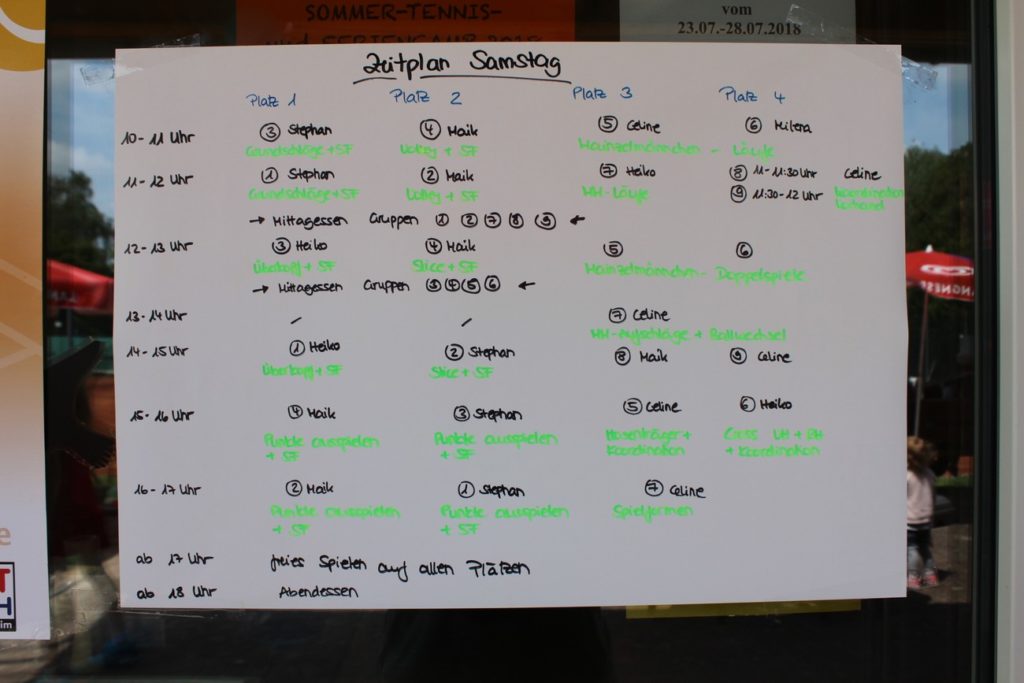 SOMMER-TENNIS-
vom
23.07.-28.07.2018
Zeitplan Samstag
Platz 1 Platz 2 Platz 3 Platz 4
10-11 Uhr ③ Stephan ④ Maik ⑤ Celine ⑥ Milena
Grundschläge+SF Volley + SF Mainzelmännchen - Läufe
11-12 Uhr ① Stephan ② Maik ⑦ Heiko ⑧ 11-11:30 Uhr Celine
Grundschläge+SF Volley + SF MM-Läufe ⑨ 11:30-12 Uhr Koordination
Vorhand
→ Mittagessen Gruppen ① ② ⑦ ⑧ ⑨ ←
12-13 Uhr ③ Heiko ④ Maik ⑤ ⑥
Überkopf + SF Slice + SF Mainzelmännchen- Doppelspiele
→ Mittagessen Gruppen ③ ④ ⑤ ⑥ ←
13-14 Uhr / / ⑦ Celine
MM-Aufschläge + Ballwechsel
14-15 Uhr ① Heiko ② Stephan ⑧ Maik ⑨ Celine
Überkopf + SF Slice + SF
15-16 Uhr ④ Maik ③ Stephan ⑤ Celine ⑥ Heiko
Punkte ausspielen Punkte ausspielen Hosenträger+ Cross VH + RH
+ SF + SF Koordination + Koordination
16-17 Uhr ② Maik ① Stephan ⑦ Celine
Punkte ausspielen Punkte ausspielen Spielformen
+ SF + SF
ab 17 Uhr freies Spielen auf allen Plätzen
ab 18 Uhr Abendessen